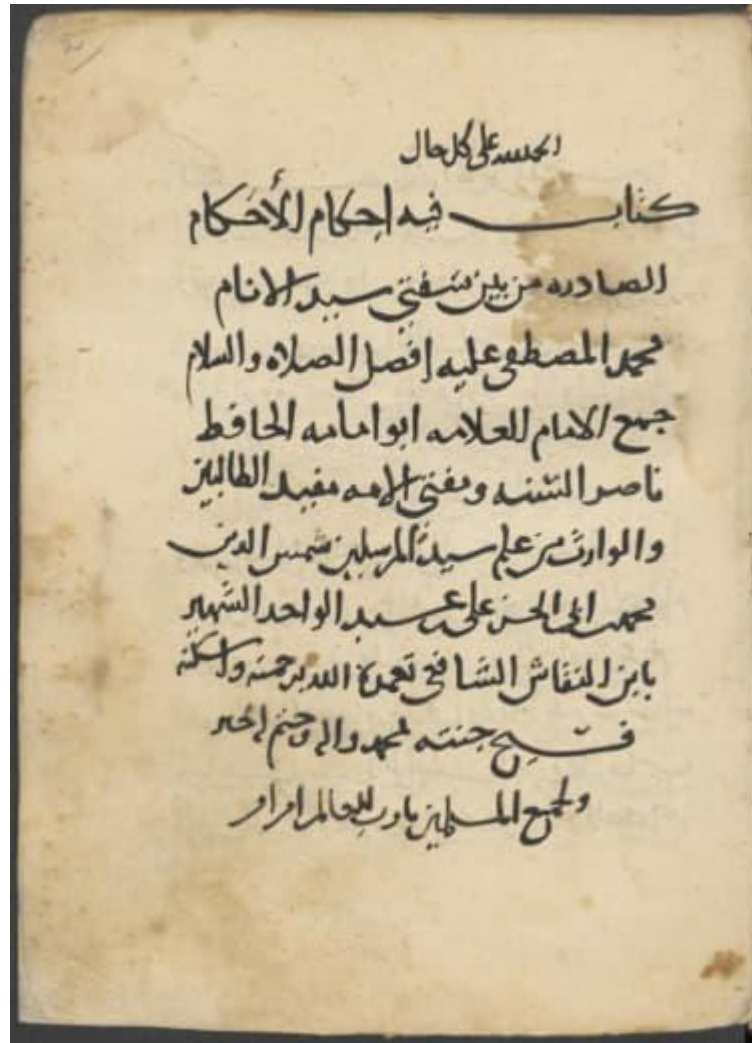 الحمد لله على كل حال
كتاب فيه احكام الأحكام
الصادره من بين شفتي سيد الانام
محمد المصطفى عليه افضل الصلاه والسلام
جمع الامام العلامه ابو امامه الحافظ
ناصر السنه ومفتي الامه مفيد الطالبين
والوارث من علم سيد المرسلين شمس الدين
محمد ابي الحسن علي بن عبد الواحد الشهير
بابن النقاش الشافعي تغمده الله برحمته واسكنه
فسيح جنته بمحمد واله وختم بخير
ولجميع المسلمين يا رب العالم